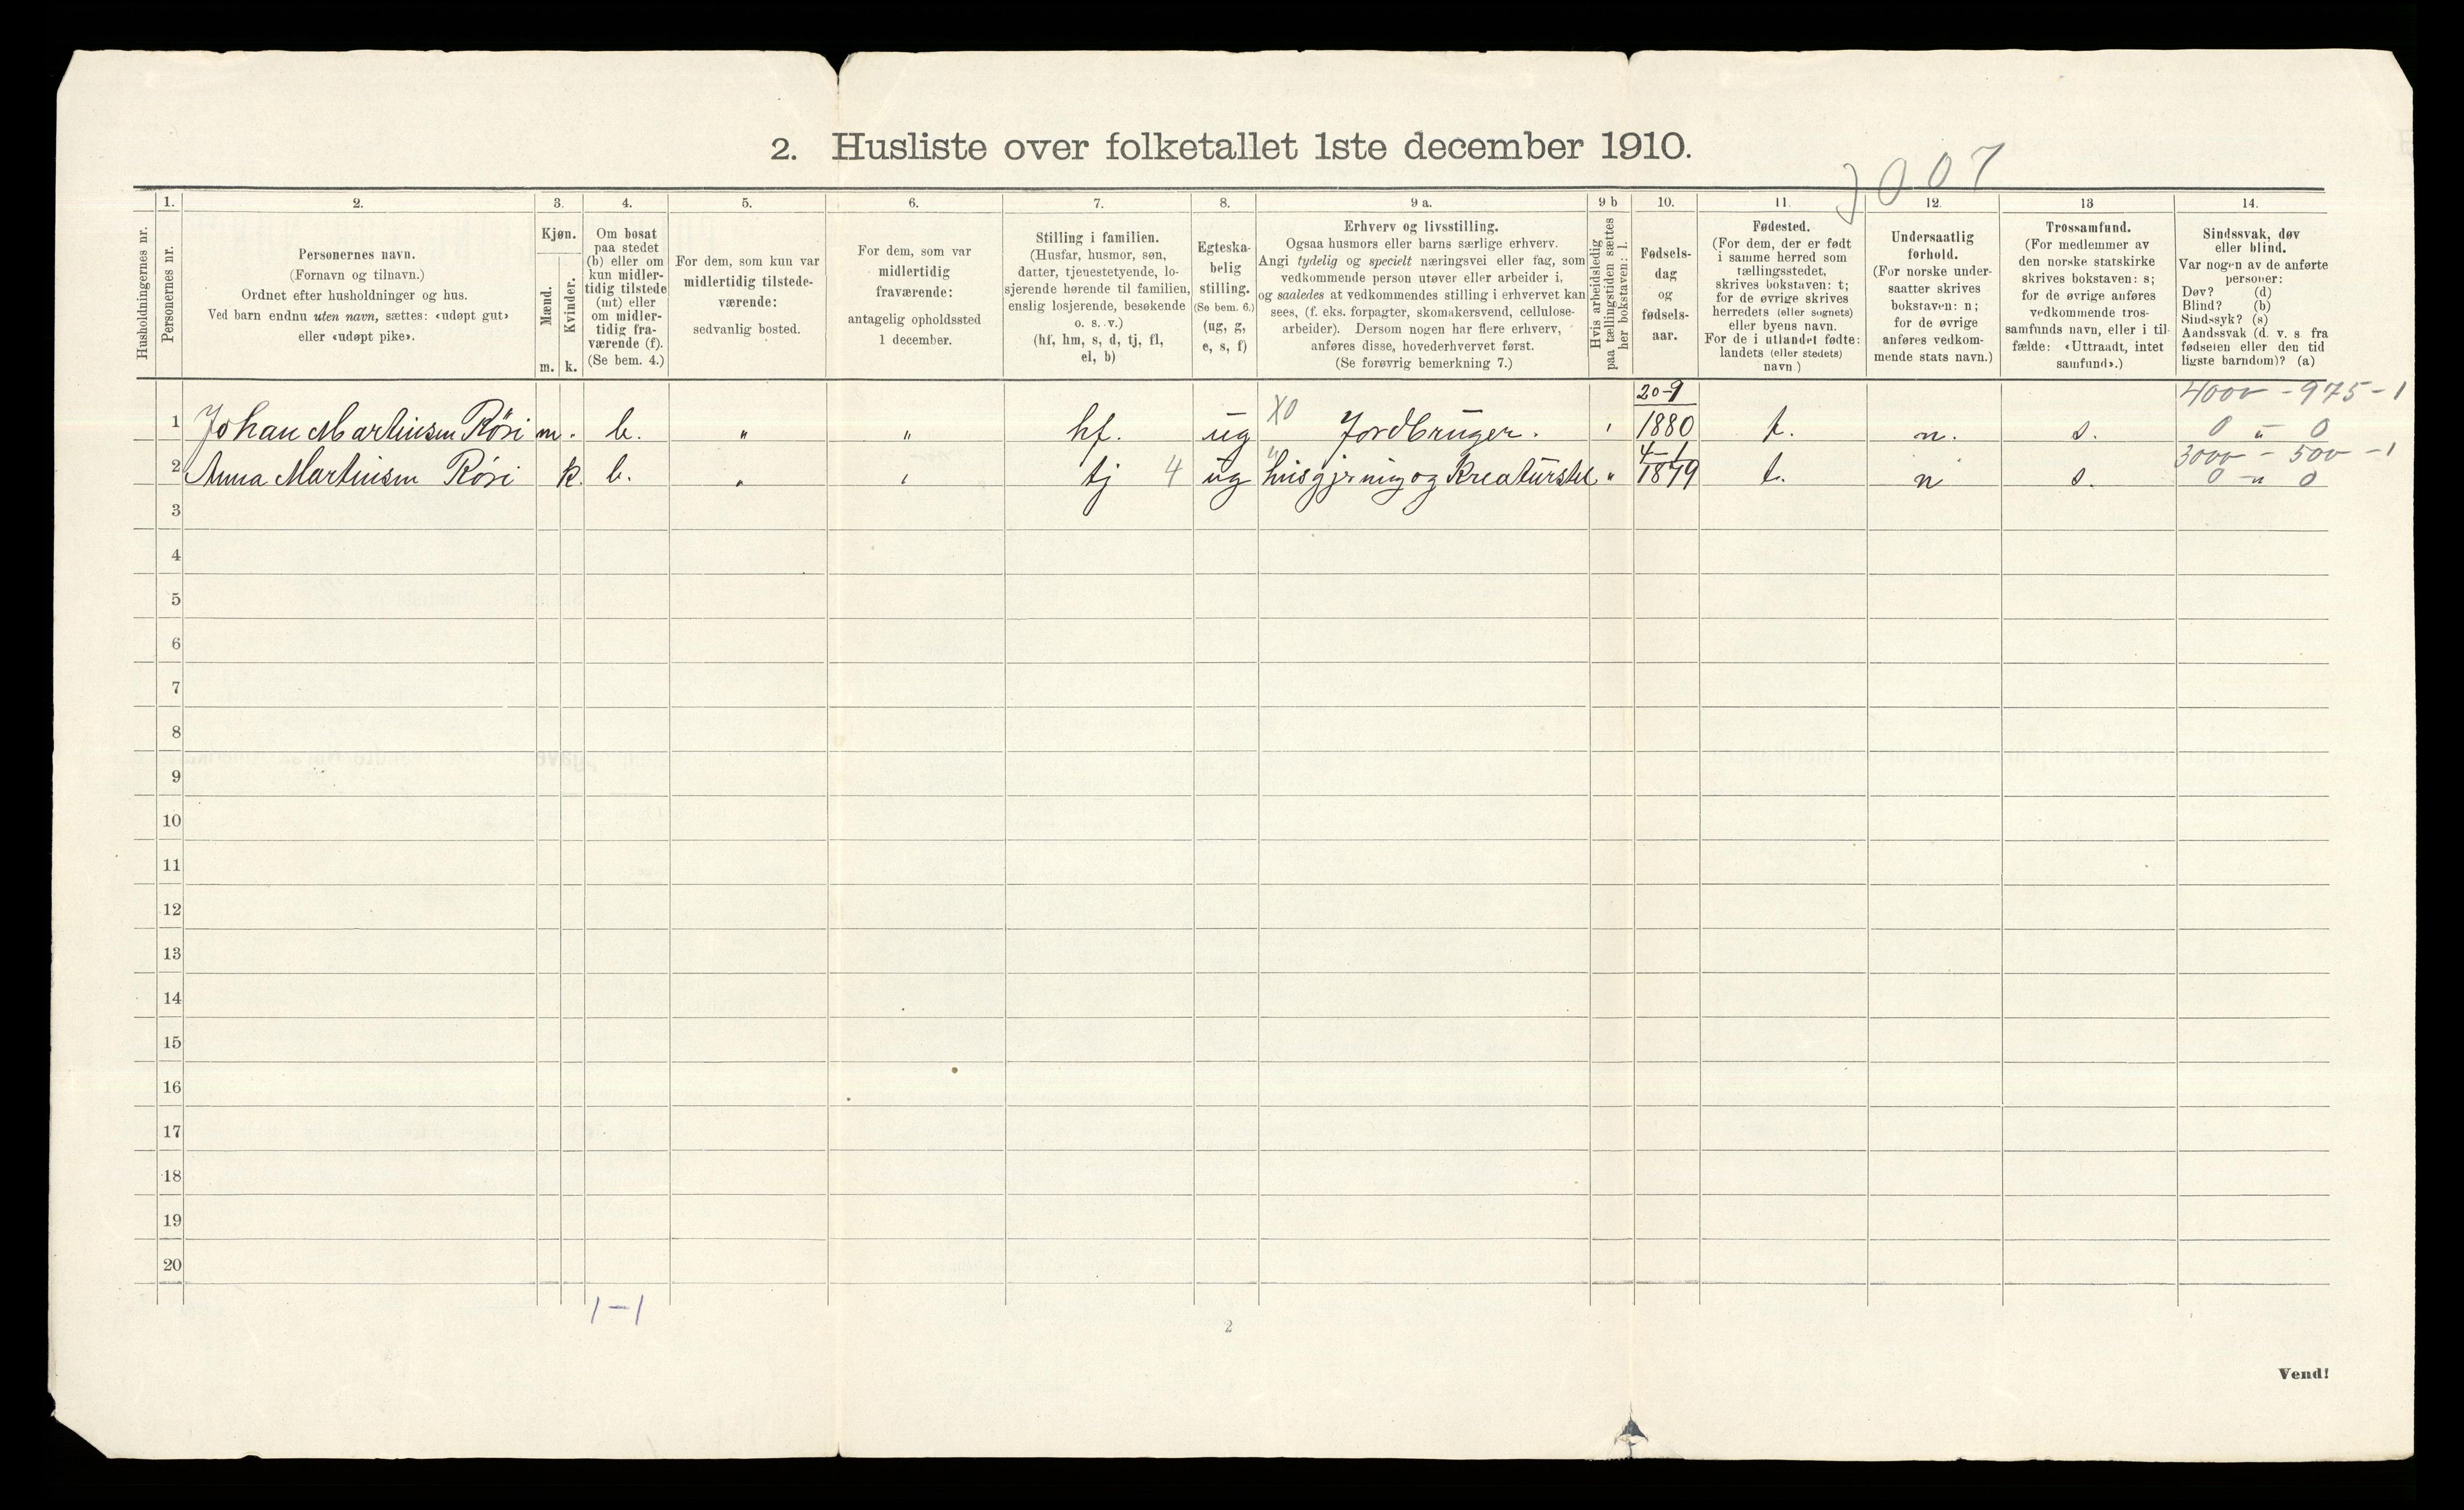 2. Husliste over folketallet 1ste december 1910.
1. 2. 3. 4. 5. 6. 7. 8. 9 a. 9 b 10. 11. 12. 13 14.
Husholdningernes nr.
Personernes nr.
Personernes navn.
(Fornavn og tilnavn.)
Ordnet efter husholdninger og hus.
Ved barn endnu uten navn, sættes: «udøpt gut»
eller «udøpt pike».
Kjøn.
Mænd.
Kvinder.
m. k.
Om bosat
paa stedet
(b) eller om
kun midler-
tidig tilstede
(mt) eller
om midler-
tidig fra-
værende (f).
(Se bem. 4.)
For dem, som kun var
midlertidig tilstede-
værende:
sedvanlig bosted.
For dem, som var
midlertidig
fraværende:
antagelig opholdssted
1 december.
Stilling i familien.
(Husfar, husmor, søn,
datter, tjenestetyende, lo-
sjerende hørende til familien,
enslig losjerende, besøkende
o. s. v.)
(hf, hm, s, d, tj, fl,
el, b)
Egteska-
belig
stilling.
(Se bem. 6.)
(ug, g,
e, s, f)
Erhverv og livsstilling.
Ogsaa husmors eller barns særlige erhverv.
Angi tydelig og specielt næringsvei eller fag, som
vedkommende person utøver eller arbeider i,
og saaledes at vedkommendes stilling i erhvervet kan
sees, (f. eks. forpagter, skomakersvend, cellulose-
arbeider). Dersom nogen har flere erhverv,
anføres disse, hovederhvervet først.
(Se forøvrig bemerkning 7.)
Hvis arbeidsledig
paa tællingstiden sættes
her bokstaven: l.
Fødsels-
dag
og
fødsels-
aar.
Fødested.
(For dem, der er født
i samme herred som
tællingsstedet,
skrives bokstaven: t;
for de øvrige skrives
herredets (eller sognets)
eller byens navn.
For de i utlandet fødte:
landets (eller stedets)
navn.)
Undersaatlig
forhold.
(For norske under-
saatter skrives
bokstaven: n;
for de øvrige
anføres vedkom-
mende stats navn.)
Trossamfund.
(For medlemmer av
den norske statskirke
skrives bokstaven: s;
for de øvrige anføres
vedkommende tros-
samfunds navn, eller i til-
fælde: «Uttraadt, intet
samfund».)
Sindssvak, døv
eller blind.
Var nogen av de anførte
personer:
Døv? (d)
Blind? (b)
Sindssyk? (s)
Aandssvak (d. v. s. fra
fødselen eller den tid
ligste barndom)? (a)
20-9 4000 - 975 - 1
1 Johan Martinsen Röri m. b. " " hf. ug X0 Jordbruger. ' 1880 t. n. s. 0 " 0
4-1 3000 - 500 - 1
2 Anna Martinsen Röri k. b. " ' tj 4 ug husgjerning og Kreaturstel " 1879 t. n s. 0 - " 0
3
4
5
6
7
8
9
10
11
12
13
14
15
16
17
18
19
20
1-1
2
Vend!